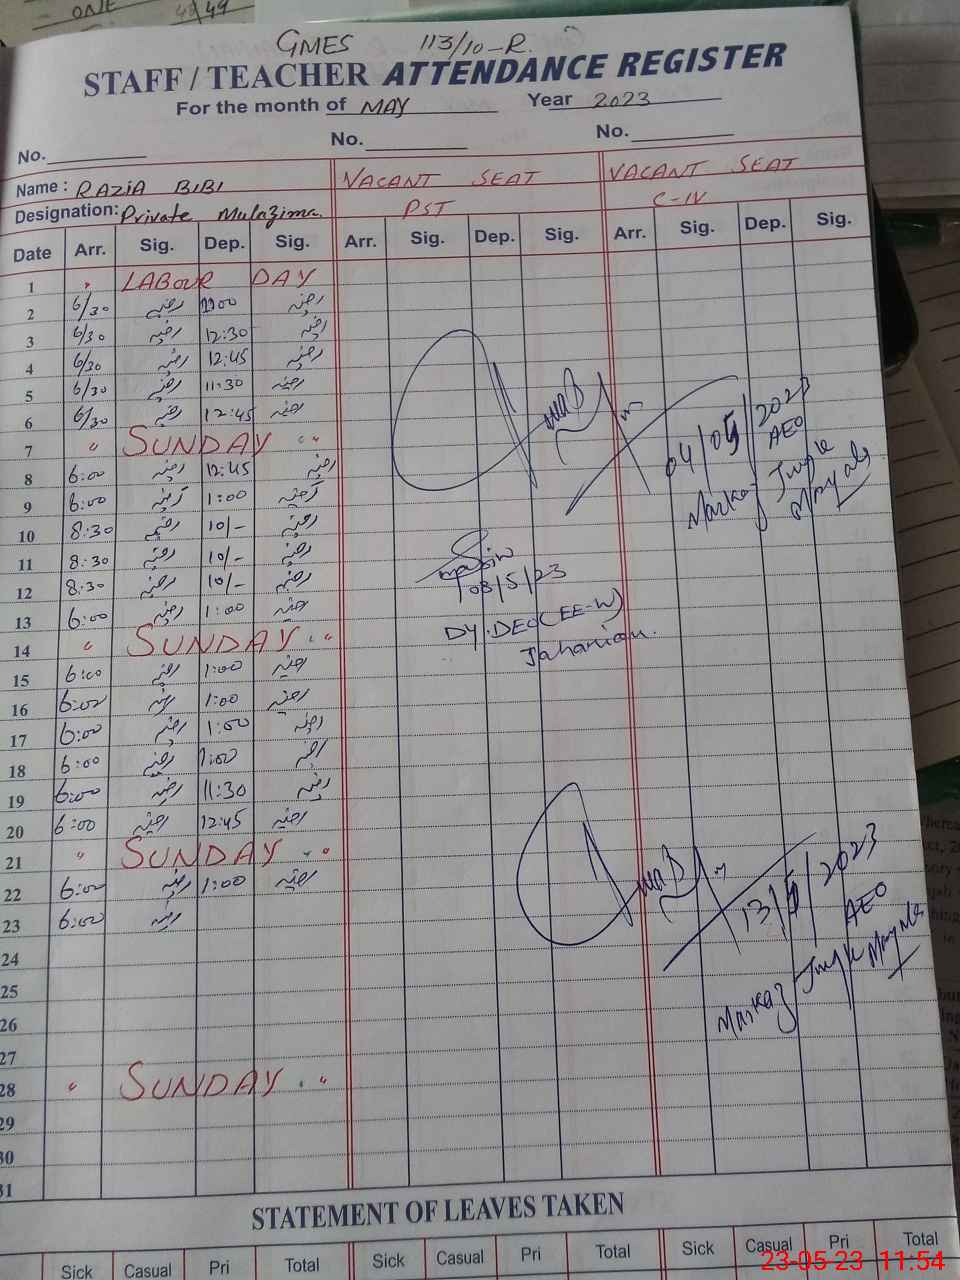 ONE
48 49
GMES 113/10-R.
STAFF / TEACHER ATTENDANCE REGISTER
For the month of MAY Year 2023
No. No. No.
Name : RAZIA BIBI VACANT SEAT VACANT SEAT
Designation: Private Mulazima. PST C-IV
Date Arr. Sig. Dep. Sig. Arr. Sig. Dep. Sig. Arr. Sig. Dep. Sig.
1 " LABOUR DAY
2 6/30 رضیہ 11:00 رضیہ
3 6/30 رضیہ 12:30 رضیہ
4 6/30 رضیہ 12:45 رضیہ
5 6/30 رضیہ 11:30 رضیہ
6 6/30 رضیہ 12:45 رضیہ
7 " SUNDAY " "
8 6:00 رضیہ 12:45 رضیہ
9 6:00 رضیہ 1:00 رضیہ
10 8:30 رضیہ 10/- رضیہ
11 8:30 رضیہ 10/- رضیہ
12 8:30 رضیہ 10/- رضیہ
13 6:00 رضیہ 1:00 رضیہ
14 " SUNDAY " "
15 6:00 رضیہ 1:00 رضیہ
16 6:00 رضیہ 1:00 رضیہ
17 6:00 رضیہ 1:00 رضیہ
18 6:00 رضیہ 1:00 رضیہ
19 6:00 رضیہ 11:30 رضیہ
20 6:00 رضیہ 12:45 رضیہ
21 " SUNDAY " "
22 6:00 رضیہ 1:00 رضیہ
23 6:00 رضیہ
24
25
26
27
28 " SUNDAY " "
29
30
31
04/05/2023
AEO
Markaz Jungle
Maryala
08/5/23
DY.DEO(EE-W)
Jahanian.
13/5/2023
AEO
Markaz Jungle Maryala
STATEMENT OF LEAVES TAKEN
Sick Casual Pri Total Sick Casual Pri Total Sick Casual Pri Total
23-05-23 11:54